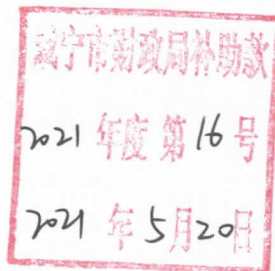 咸宁市财政局补助款
2021 年度 第 16 号
2021 年 5 月 20 日